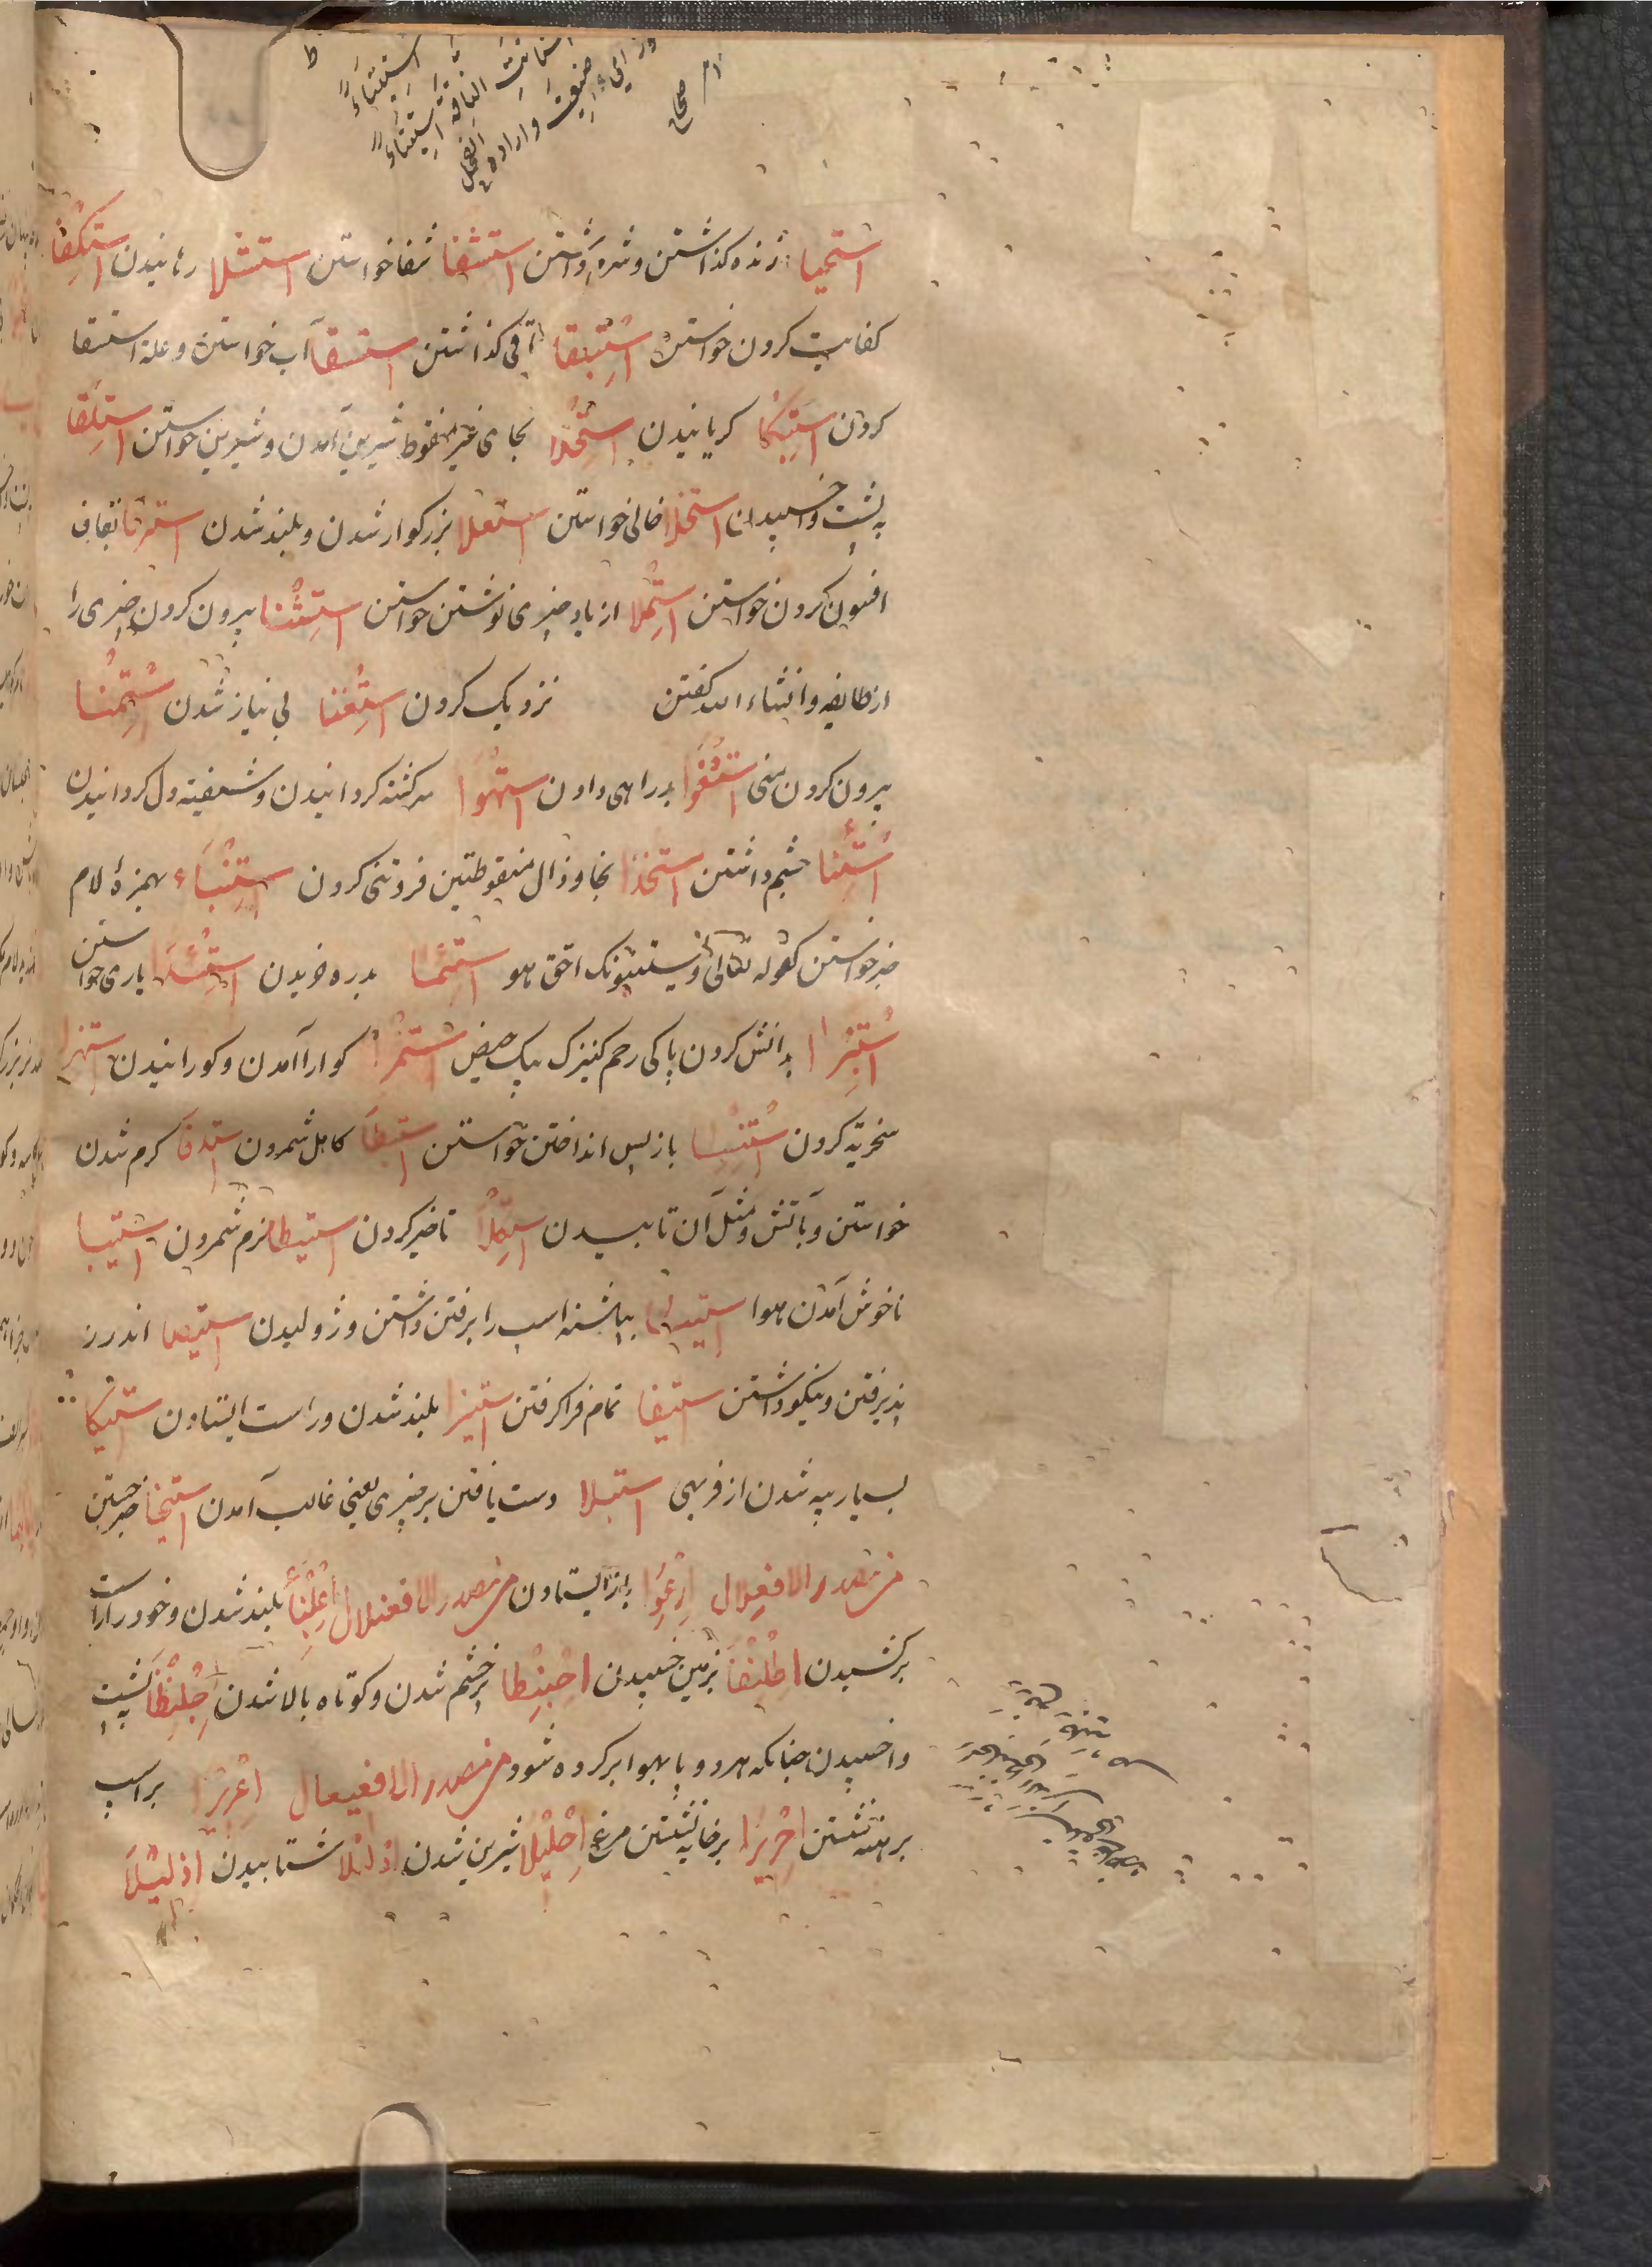 استيتاء
الناقة استيتاء
ضبعت وارادت الفحل
صحاح
استحيا زنده كذاشتن وشرم داشتن استشفا شفا خواستن استشلا رهانيدن استكفا
كفايت كردن خواستن استبقا باقى كذاشتن استسقا آب خواستن وعلة استسقا
كردن استبكا كريانيدن استحلا بحاى غير منقوط شيرين آمدن وشيرين خواستن استلقا
به پشت واخسپيدن استخلا خالى خواستن استعلا بزركوار شدن وبلند شدن استرقا بقاف
افسون كردن خواستن استملا از ياد چيزى نوشتن خواستن استثنا بيرون كردن چيزى را
از طايفه وانشاء الله كفتن نزديك كردن استغنا بى نياز شدن استمنا
بيرون كردن منى استغوا بيراهى دادن استهوا سركشته كردانيدن وشيفته دل كردانيدن
استئنا چشم داشتن استخذا بخا وذال منقوطتين فروتنى كردن استنباء بهمزۀ لام
خبر خواستن كقوله تعالى ويستنبئونك احق هو استما بدره خريدن يارى خواستن
استبرا پرانش كردن پاكى رحم كنيزك بيك حيض استمرا كوارا آمدن وكورانيدن استهزا
سخريه كردن استنسا بازپس انداختن خواستن استبطا كاهل شمردن استدفا كرم شدن
خواستن وبآتش ومثل آن تابيدن استكلا تاخير كردن استيطا نرم شمردن استيبا
ناخوش آمدن هوا بپاشنه اسپ را برفتن داشتن وژوليدن استيصا اندرز
پذيرفتن ونيكو داشتن استيفا تمام فرا كرفتن استيزا بلند شدن وراست ايستادن استيكا
بسيار پيه شدن از فربهى استيلا دست يافتن بر چيزى يعنى غالب آمدن استيخا خبر جستن
من مصدر الافعلال ارعوا باز ايستادن من مصدر الافعنلال اعلنبأ بلند شدن وخود را راست
بركشيدن اطلنفا بزمين خسپيدن احبنطا پر خشم شدن وكوتاه بالا شدن اجلنظا به پشت
واخسپيدن چنانكه هر دو پا بهوا بر كرده شود من مصدر الافعيعال اعريرا بر اسپ
برهنه نشستن احريزا بر خايه نشستن مرغ احليلا شيرين شدن اذليلا شتابيدن اذليلا